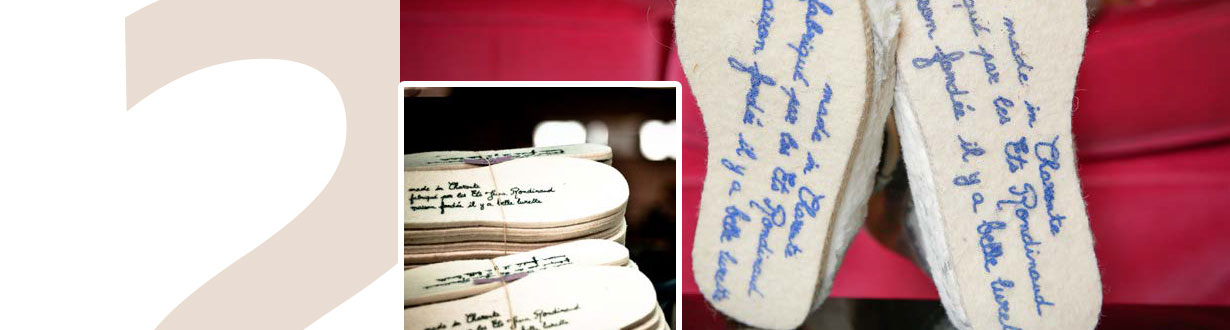 2
made in Charente
fabriqué par les Ets Rondinaud
maison fondée il y a belle lurette
made in Charente
fabriqué par les Ets Rondinaud
maison fondée il y a belle lurette
made in Charente
fabriqué par les Ets Rondinaud
made in Charente
qué par les Ets Rondinaud
son fondée il y a belle lurel